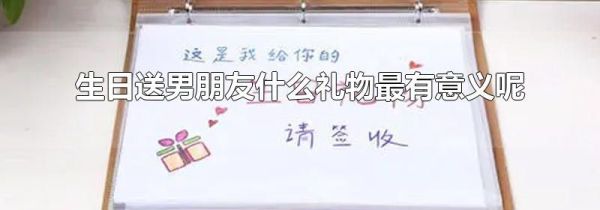 这是我给你的
生日送男朋友什么礼物最有意义呢
请签收